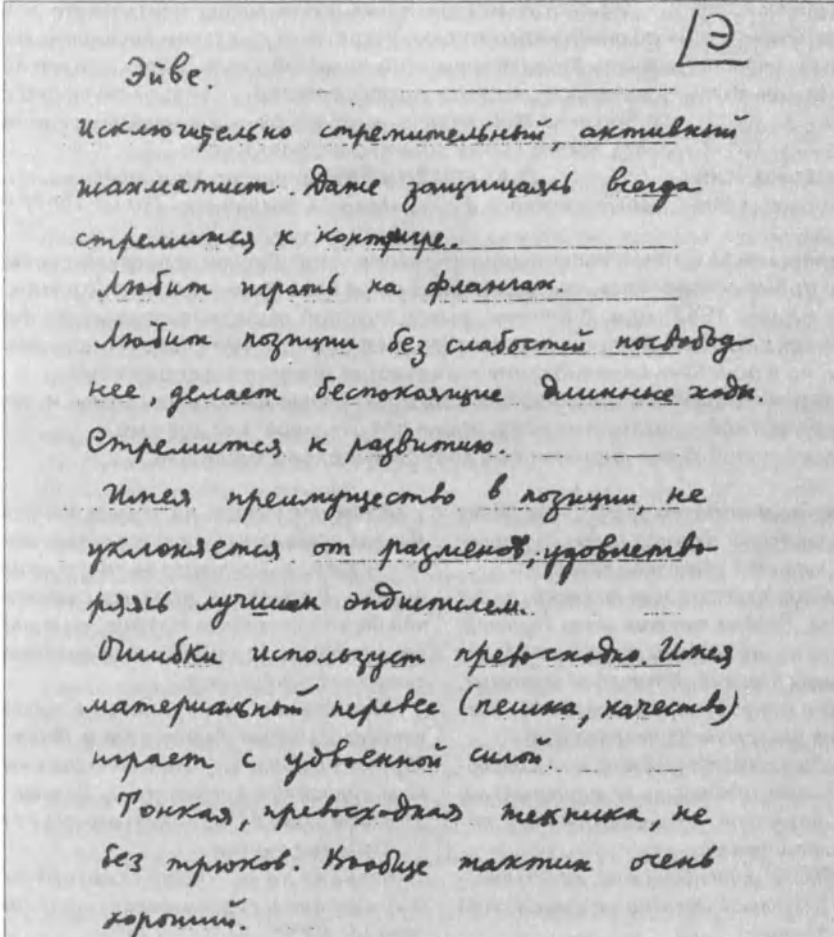 Э
Эйве.
Исключительно стремительный, активный
шахматист. Даже защищаясь всегда
стремится к контригре.
Любит играть на флангах.
Любит позиции без слабостей посвобод-
нее, делает беспокоящие длинные ходы.
Стремится к развитию.
Имея преимущество в позиции, не
уклоняется от разменов, удовлетво-
ряясь лучшим эндшпилем.
Ошибки использует превосходно. Имея
материальный перевес (пешка, качество)
играет с удвоенной силой.
Тонкая, превосходная техника, не
без трюков. Вообще тактик очень
хороший.